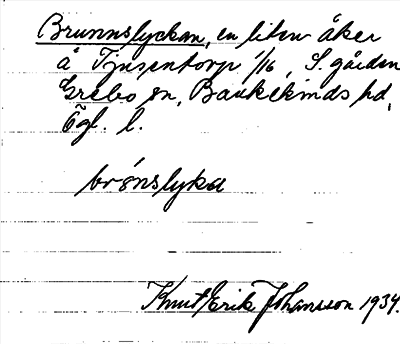 Brunnslyckan, en liten åker
å Tjusentorp 1/16, S. gården
Grebo sn, Bankekinds hd,
Ögl. l.
brónslyka
Knut Erik Johansson 1934.